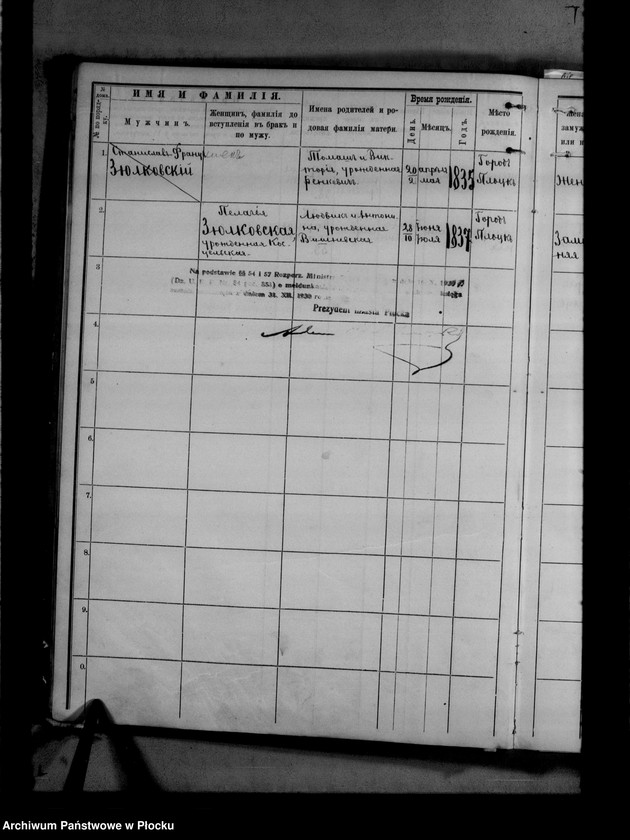 № дома.
№ по порядку.
ИМЯ И ФАМИЛІЯ.
Мужчинъ.
Женщинъ, фамилія до
вступленія въ бракъ и
по мужу.
Имена родителей и ро-
довая фамилія матери.
Время рожденія.
День.
Мѣсяцъ.
Годъ.
Мѣсто
рожденія.
1.
Станиславъ Францъ
Зюлковскій
Томашъ и Вик-
торія, урожденная
20 апрѣля
2 мая
1835
Городъ
Плоцкъ
2.
Пелагія
Зюлковская
урожденная
Людвикъ и Антони-
на, урожденная
Вишневская
28 іюня
10 іюля
1837
Городъ
Плоцкъ
3
Na podstawie §§ 54 i 57 Rozporz. Ministr
o meldunk
z dniem 31. XII. 1930
Prezydent miasta Płocka
4.
5
6.
7.
8.
9.
0.
Archiwum Państwowe w Płocku